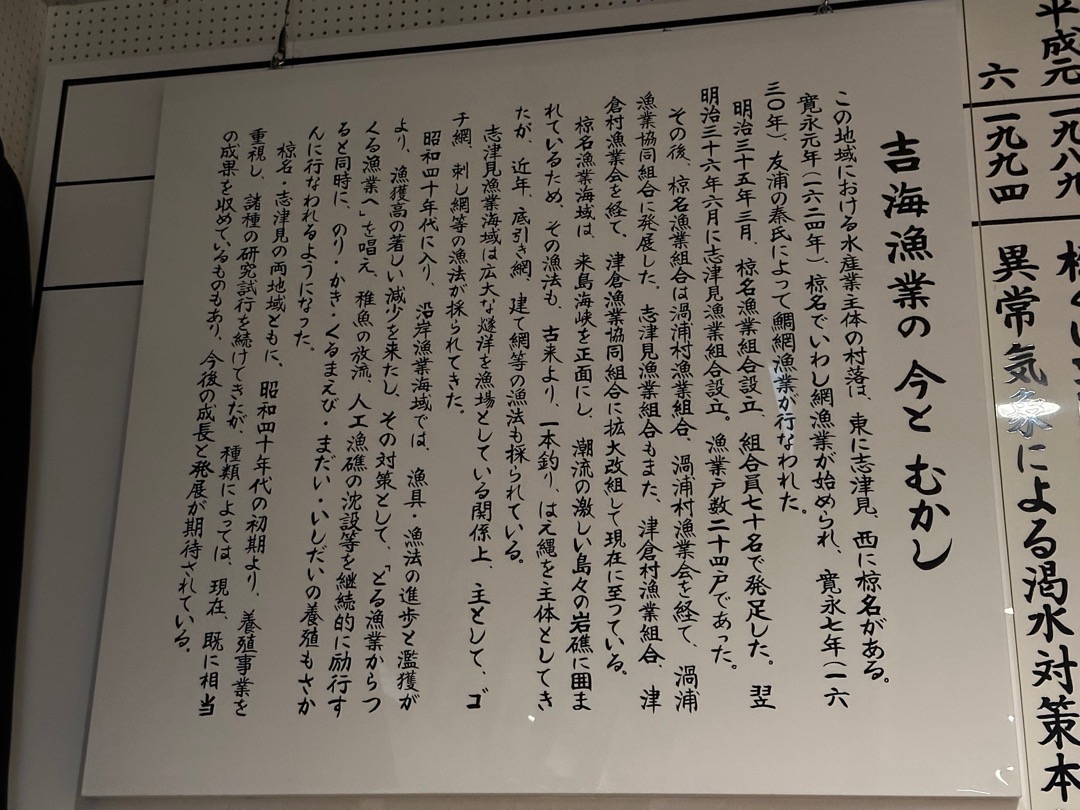 平成元 一九八九
六 一九九四 異常気象による渇水対策本
吉海漁業の今とむかし
この地域における水産業主体の村落は、東に志津見、西に椋名がある。
寛永元年(一六二四年)、椋名でいわし網漁業が始められ、寛永七年(一六
三〇年)、友浦の秦氏によって鯛網漁業が行なわれた。
明治三十五年三月、椋名漁業組合設立、組合員七十名で発足した。翌
明治三十六年六月に志津見漁業組合設立。漁業戸数二十四戸であった。
その後、椋名漁業組合は渦浦村漁業組合、渦浦村漁業会を経て、渦浦
漁業協同組合に発展した。志津見漁業組合もまた、津倉村漁業組合、津
倉村漁業会を経て、津倉漁業協同組合に拡大改組して現在に至っている。
椋名漁業海域は、来島海峡を正面にし、潮流の激しい島々の岩礁に囲ま
れているため、その漁法も、古来より、一本釣り、はえ縄を主体としてき
たが、近年、底引き網、建て網等の漁法も採られている。
志津見漁業海域は広大な燧洋を漁場としている関係上、主として、ゴ
チ網、刺し網等の漁法が採られてきた。
昭和四十年代に入り、沿岸漁業海域では、漁具・漁法の進歩と濫獲が
より、漁獲高の著しい減少を来たし、その対策として、「とる漁業からつ
くる漁業へ」を唱え、稚魚の放流、人工漁礁の沈設等を継続的に励行す
ると同時に、のり・かき・くるまえび・まだい・いしだいの養殖もさか
んに行なわれるようになった。
椋名・志津見の両地域ともに、昭和四十年代の初期より、養殖事業を
重視し、諸種の研究試行を続けてきたが、種類によっては、現在、既に相当
の成果を収めているものもあり、今後の成長と発展が期待されている。